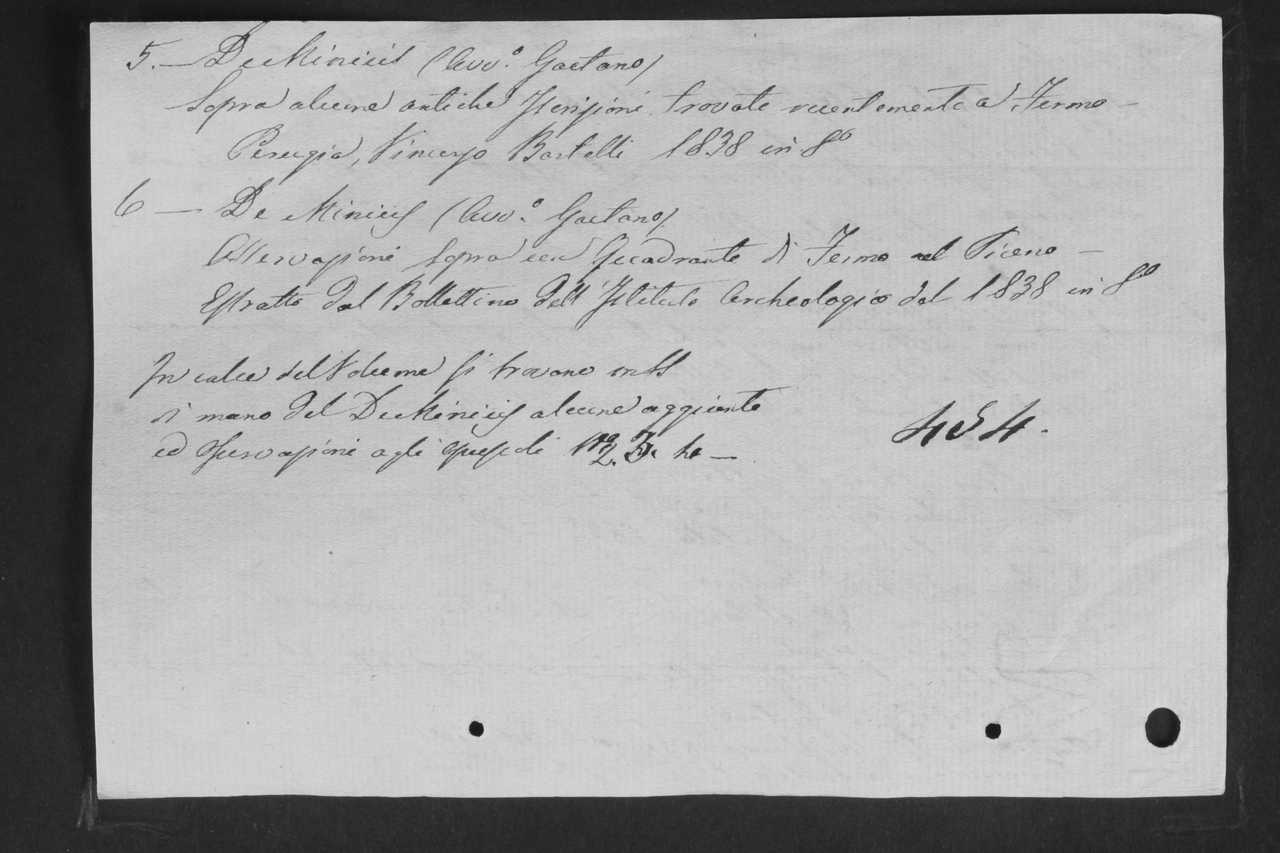 5. — De Minicis (Avv.º Gaetano)
Sopra alcune antiche Iscrizioni trovate recentemente a Fermo —
Perugia, Vincenzo Bartelli 1838 in 8º
6 — De Minicis (Avv.º Gaetano)
Osservazioni sopra un Quadrante di Fermo nel Piceno —
Estratto dal Bollettino dell'Istituto Archeologico del 1838 in 8º
In calce del Volume si trovano mss
di mano del De Minicis alcune aggiunte
ed osservazioni agli opuscoli 2. 3. —
454.